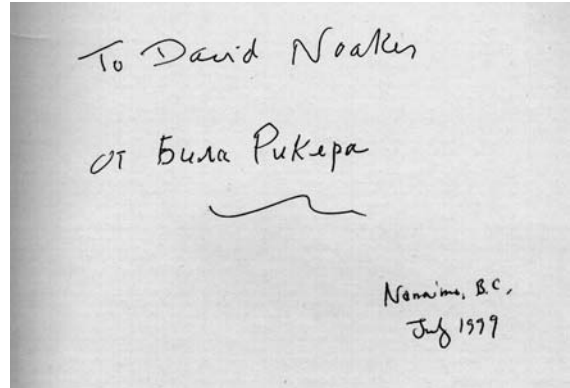 To David Noakes
от Била Рикера
Nanaimo, B.C.
July 1999